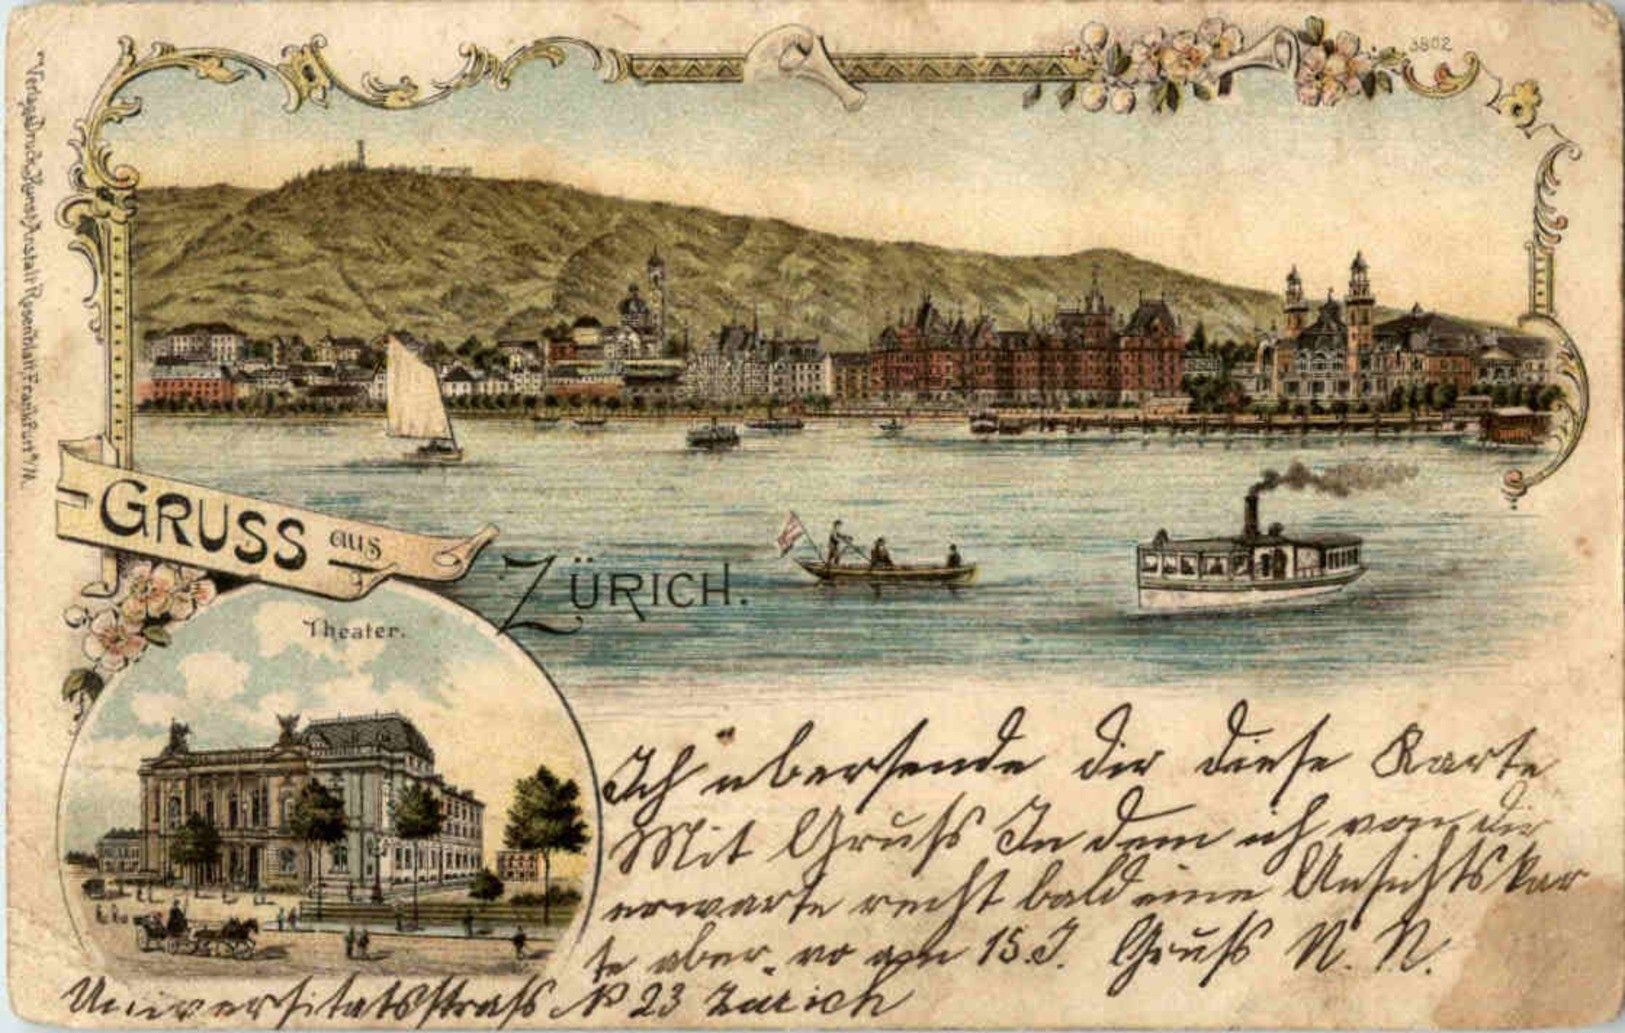 3802
Verlag Druck Kunst Anstalt Rosenblatt Frankfurt a/M.
GRUSS aus
ZÜRICH.
Theater.
Ich übersende dir diese Karte
Mit Gruß In dem ich von dir
erwarte recht bald eine Ansichtskar
te aber wo am 15. J. Gruß N. N.
Universitätsstraß N 23 Zürich